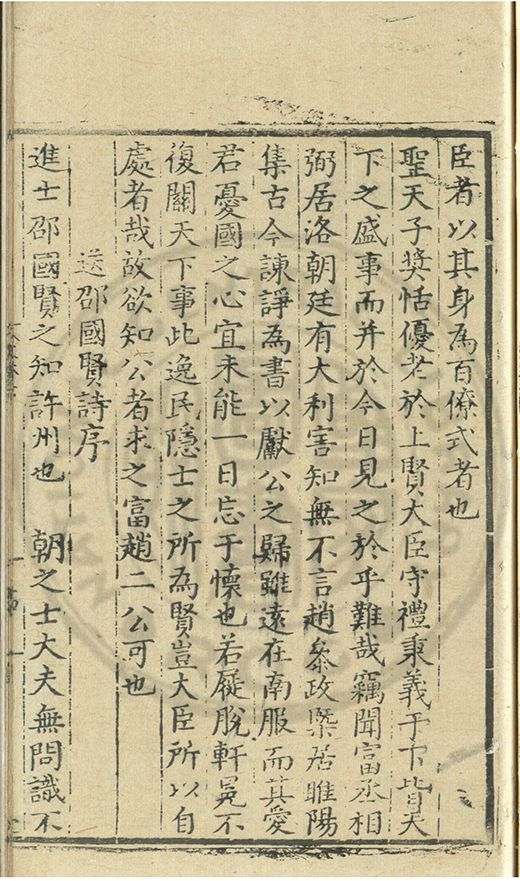 臣者以其身為百僚式者也
聖天子奬恬優老於上賢大臣守禮秉義于下皆天
下之盛事而并於今日見之於乎難哉竊聞富丞相
弼居洛朝廷有大利害知無不言趙叅政槩居睢陽
集古今諫諍為書以獻公之歸雖遠在南服而其愛
君憂國之心宜未能一日忘于懷也若屣脫軒冕不
復關天下事此逸民隱士之所為賢豈大臣所以自
處者哉故欲知公者求之富趙二公可也
送邵國賢詩序
進士邵國賢之知許州也 朝之士大夫無問識不